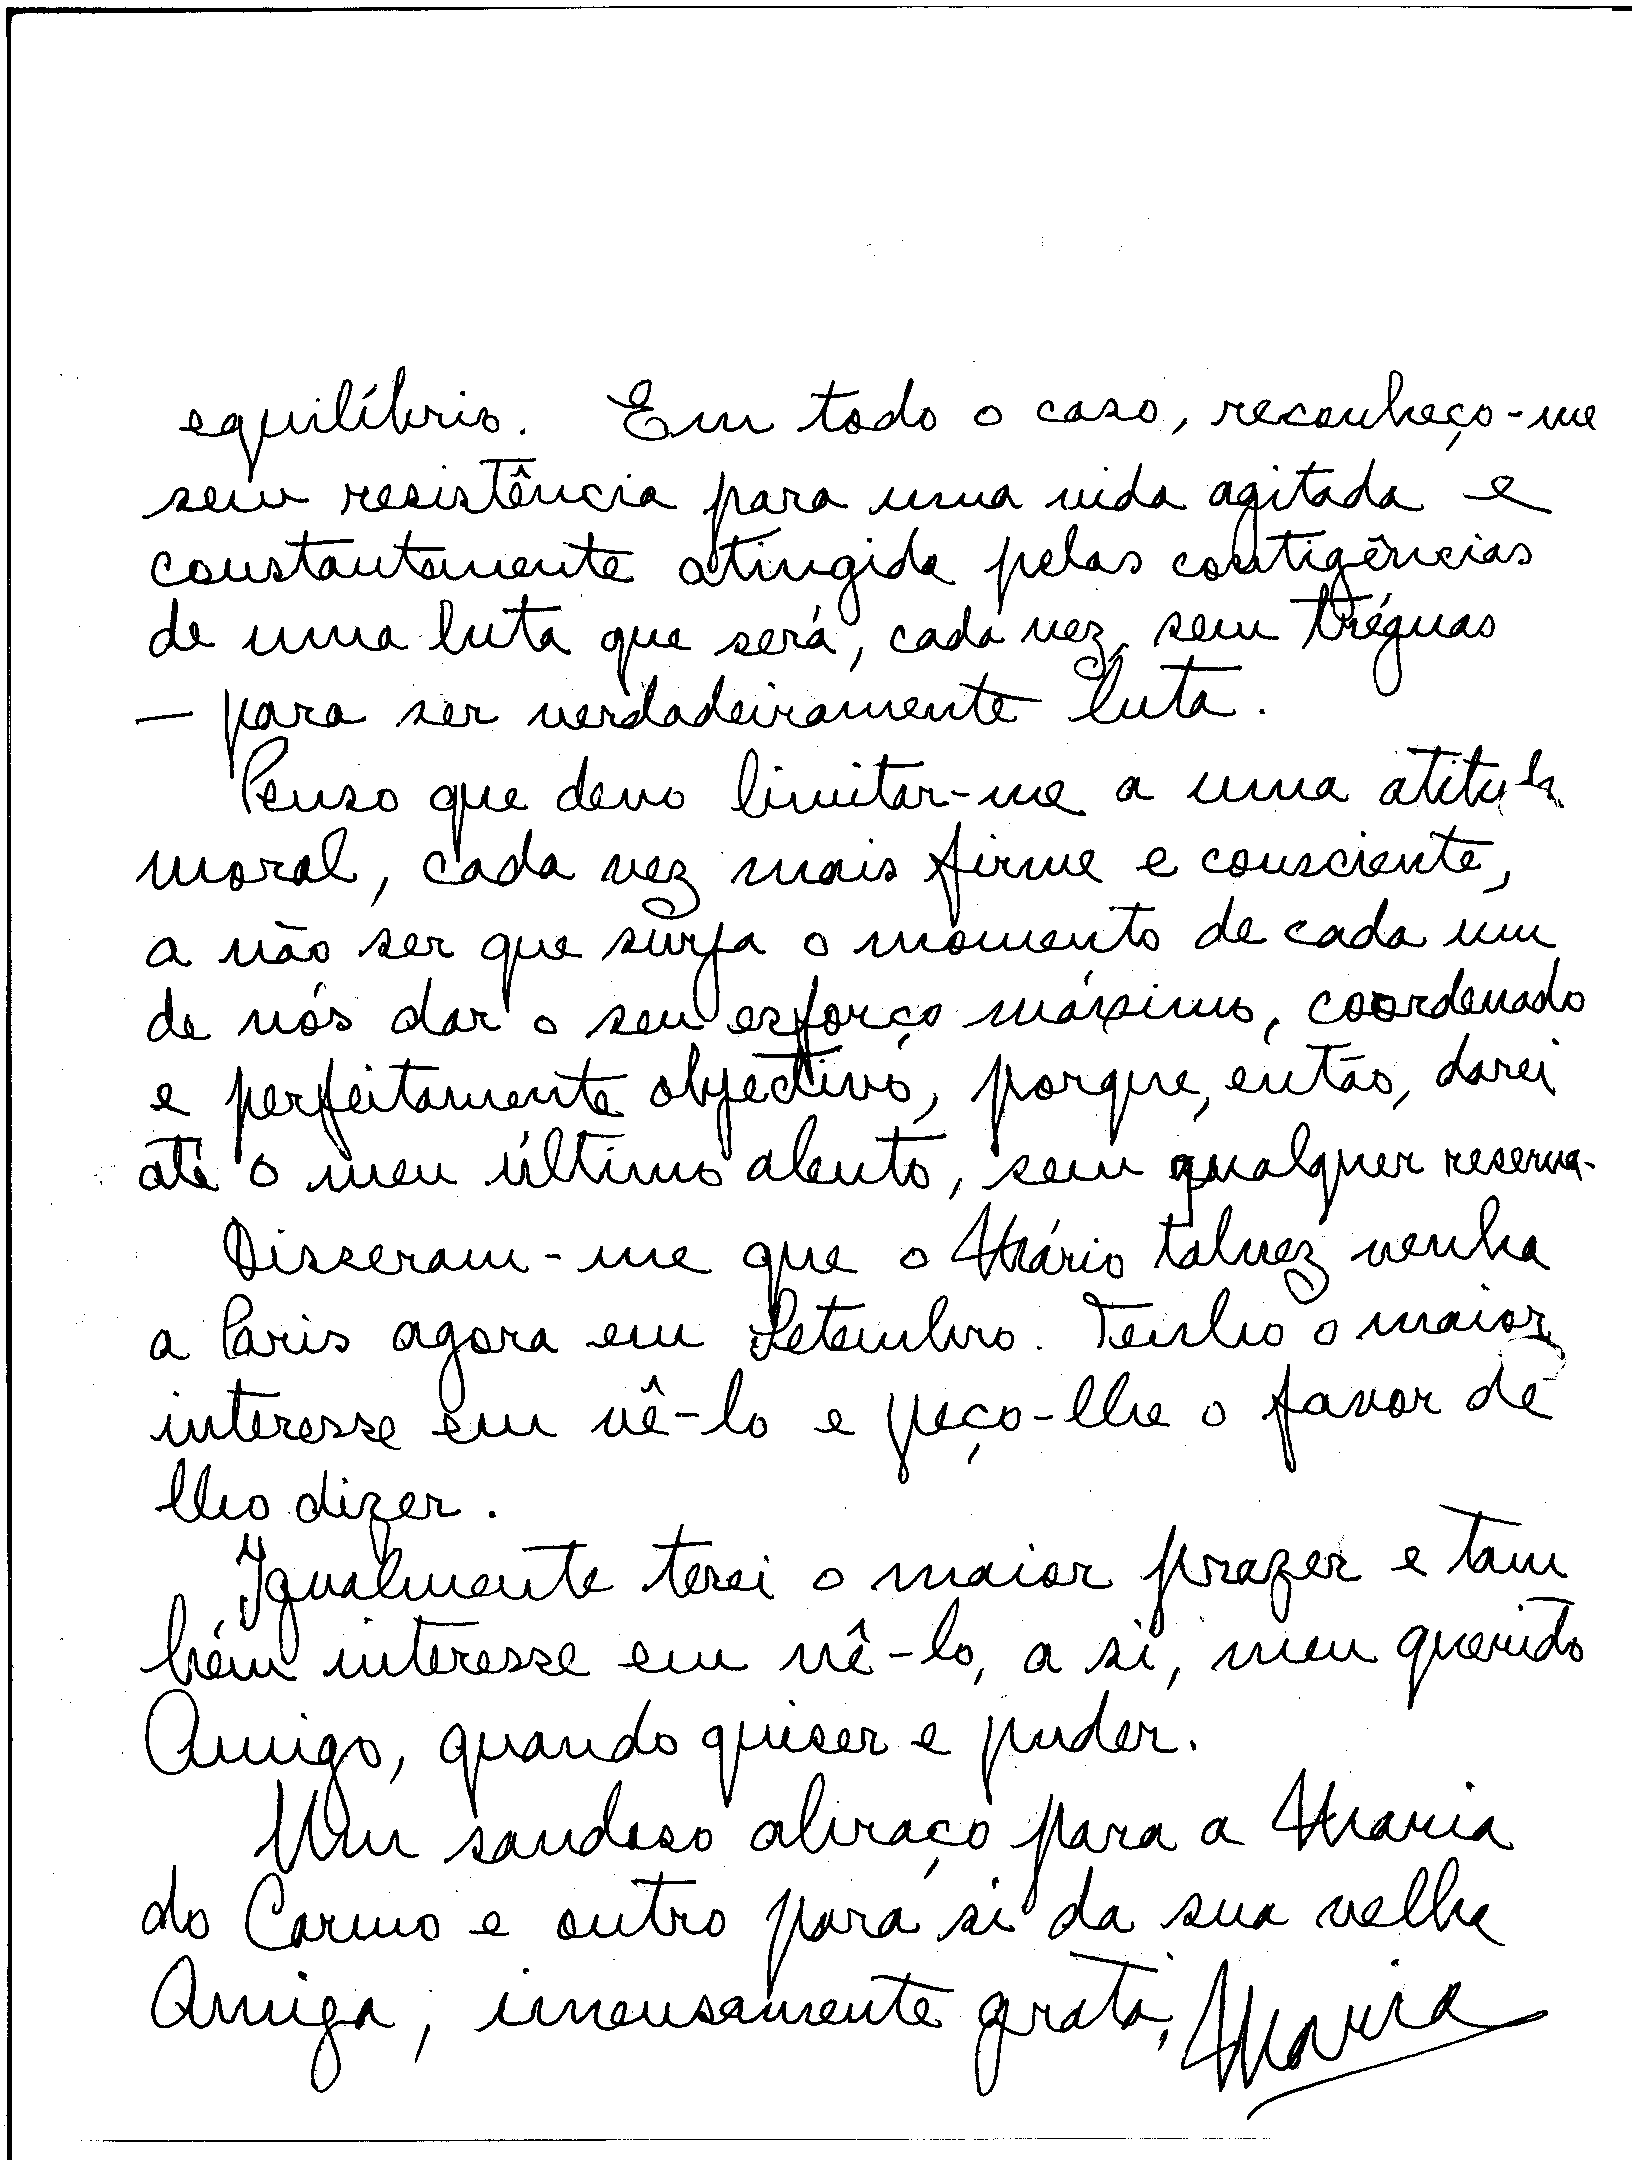 equilíbrio. Em todo o caso, reconheço-me
sem resistência para uma vida agitada e
constantemente atingida pelas contigências
de uma luta que será, cada vez, sem tréguas
— para ser verdadeiramente luta.
Penso que devo limitar-me a uma atitude
moral, cada vez mais firme e consciente,
a não ser que surja o momento de cada um
de nós dar o seu esforço máximo, coordenado
e perfeitamente objectivo, porque, então, darei
até o meu último alento, sem qualquer reserva.
Disseram-me que o Mário talvez venha
a Paris agora em Setembro. Tenho o maior
interesse em vê-lo e peço-lhe o favor de
lho dizer.
Igualmente terei o maior prazer e tam
bém interesse em vê-lo, a si, meu querido
Amigo, quando quiser e puder.
Um saudoso abraço para a Maria
do Carmo e outro para si da sua velha
Amiga, imensamente grata, Maria